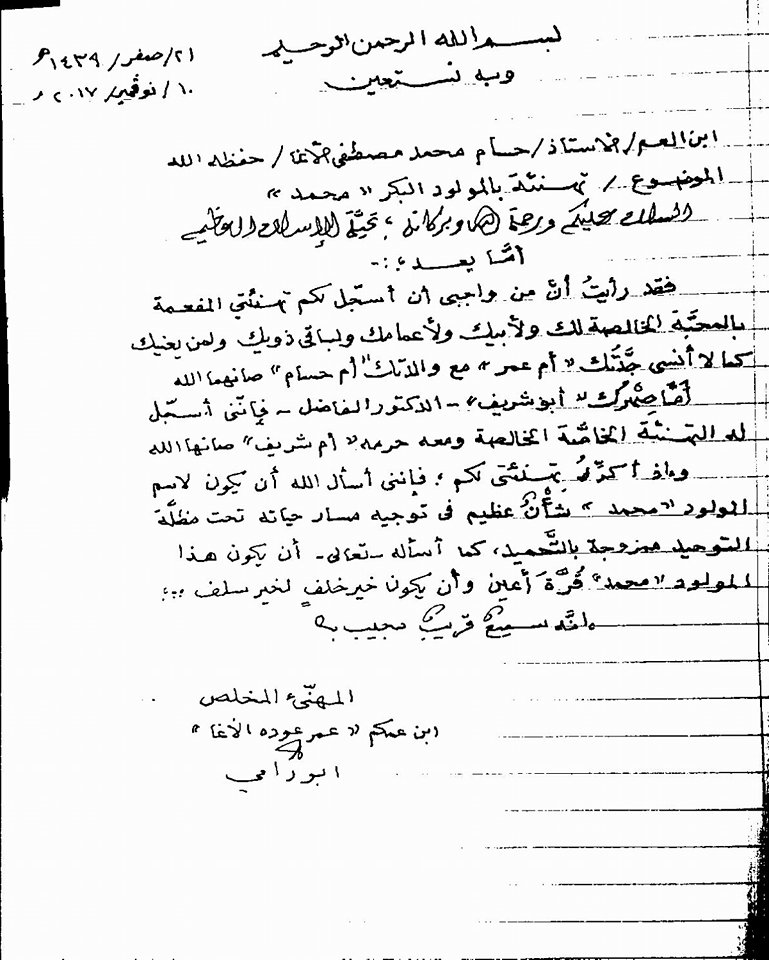 بسم الله الرحمن الرحيم
٢١/صفر/١٤٣٩هـ
وبه نستعين
١٠/نوڤمبر/٢٠١٧م
ابن العم/الاستاذ/حسام محمد مصطفى الأغا/حفظه الله
الموضوع/ تهنئة بالمولود البكر "محمد"
السلام عليكم ورحمة الله وبركاته؛ تحيَّة الإسلام العظيم
أمَّا بعـــد؛:-
فقد رأيتُ أنَّ من واجبي أن أسجّل لكم تهنئتي المفعمة
بالمحبَّة الخالصة لك ولأبيك ولأعمامك ولباقي ذويك ولمن يعنيك
كما لا أنسى جدَّتك "أم عمر" مع والدتك "أم حسام" صانهما الله
أمَّا صِهْرُك "أبو شريف" - الدكتور الفاضل - فإنَّني أسجّل
له التهنئة الخاصَّة الخالصة ومعه حرمه "أم شريف" صانها الله
وإذ أكرِّرُ تهنئتي لكم؛ فإنني أسأل الله أن يكون لاسم
المولود "محمد" شأْنٌ عظيم في توجيه مسار حياته تحت مظلَّة
التوحيد ممزوجة بالتَّحميد، كما أسأله -تعالى- أن يكون هذا
المولود "محمد" قُرَّةَ أعين وأن يكون خير خلفٍ لخير سلف ،،،؛
إنَّه سميعٌ قريبٌ مجيب
المهنّئ المخلص
ابن عمكم "عمر عوده الأغا"
ابو رامي